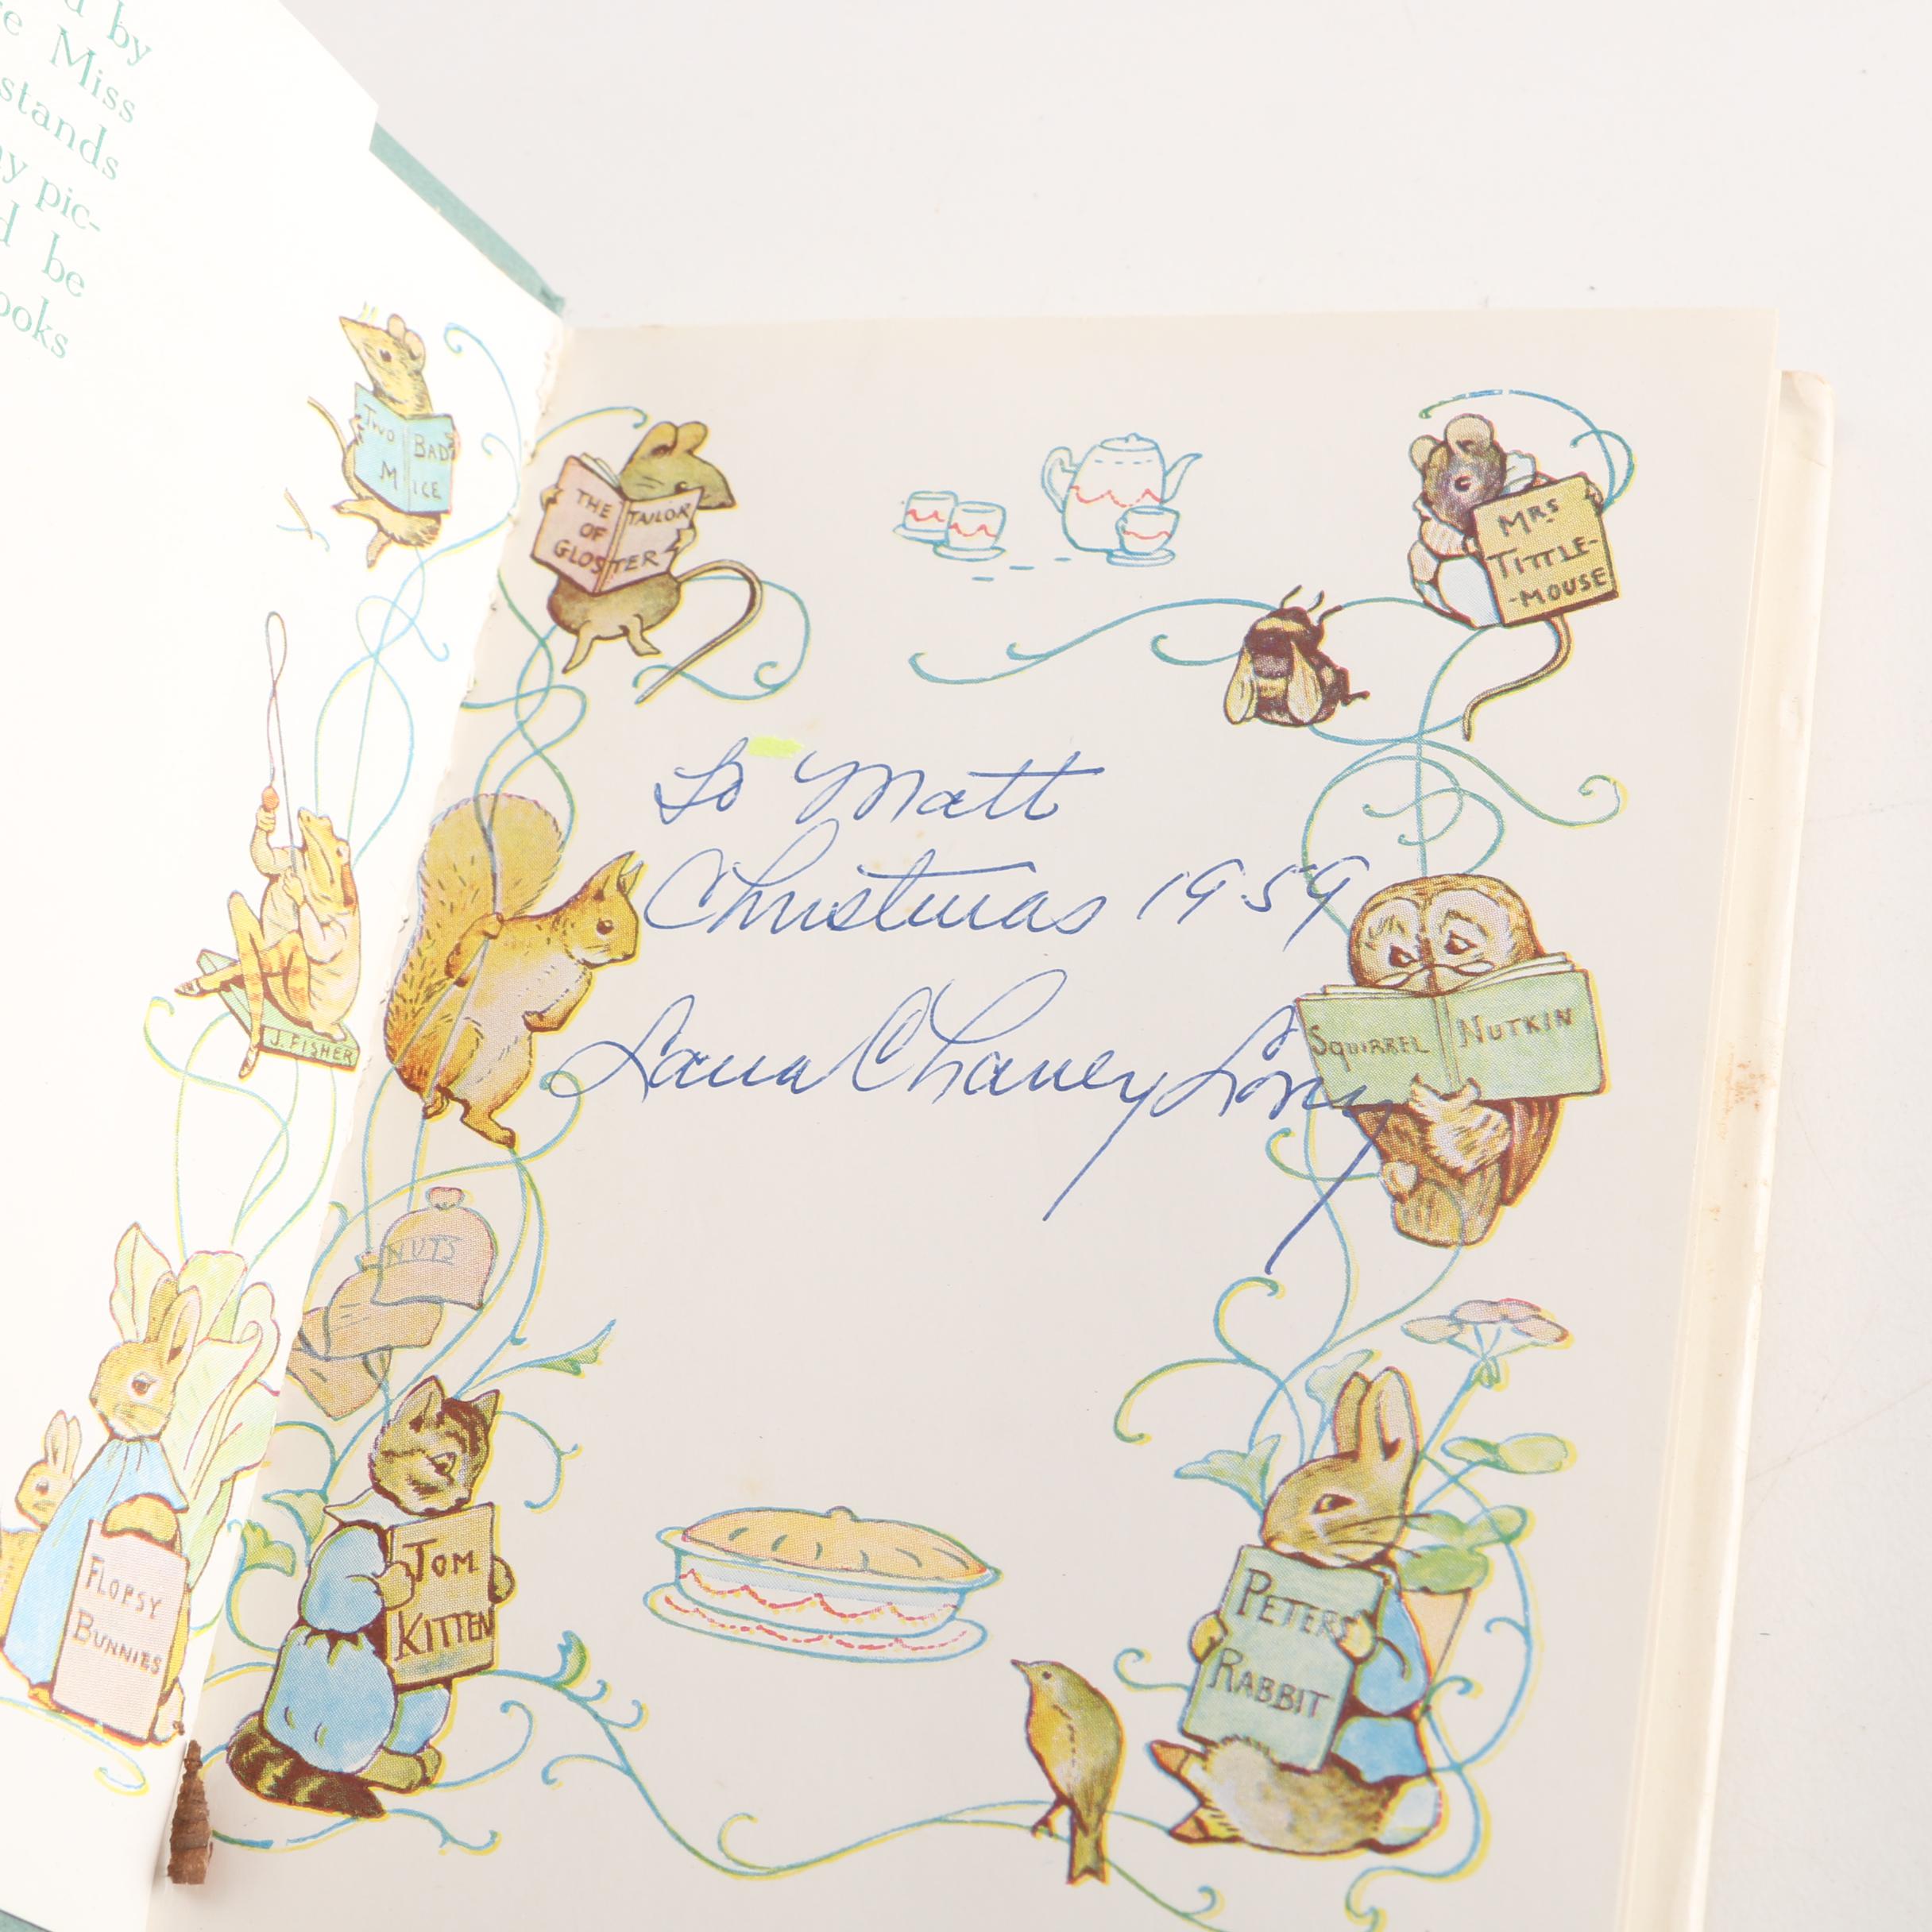 d by
e Miss
stands
y pic-
d be
ooks
TWO BAD
MICE
THE TAILOR
OF
GLOSTER
MRS
TITTLE-
-MOUSE
J. FISHER
To Matt
Christmas 1959
Chaney Long
SQUIRREL NUTKIN
NUTS
FLOPSY
BUNNIES
TOM
KITTEN
PETER
RABBIT